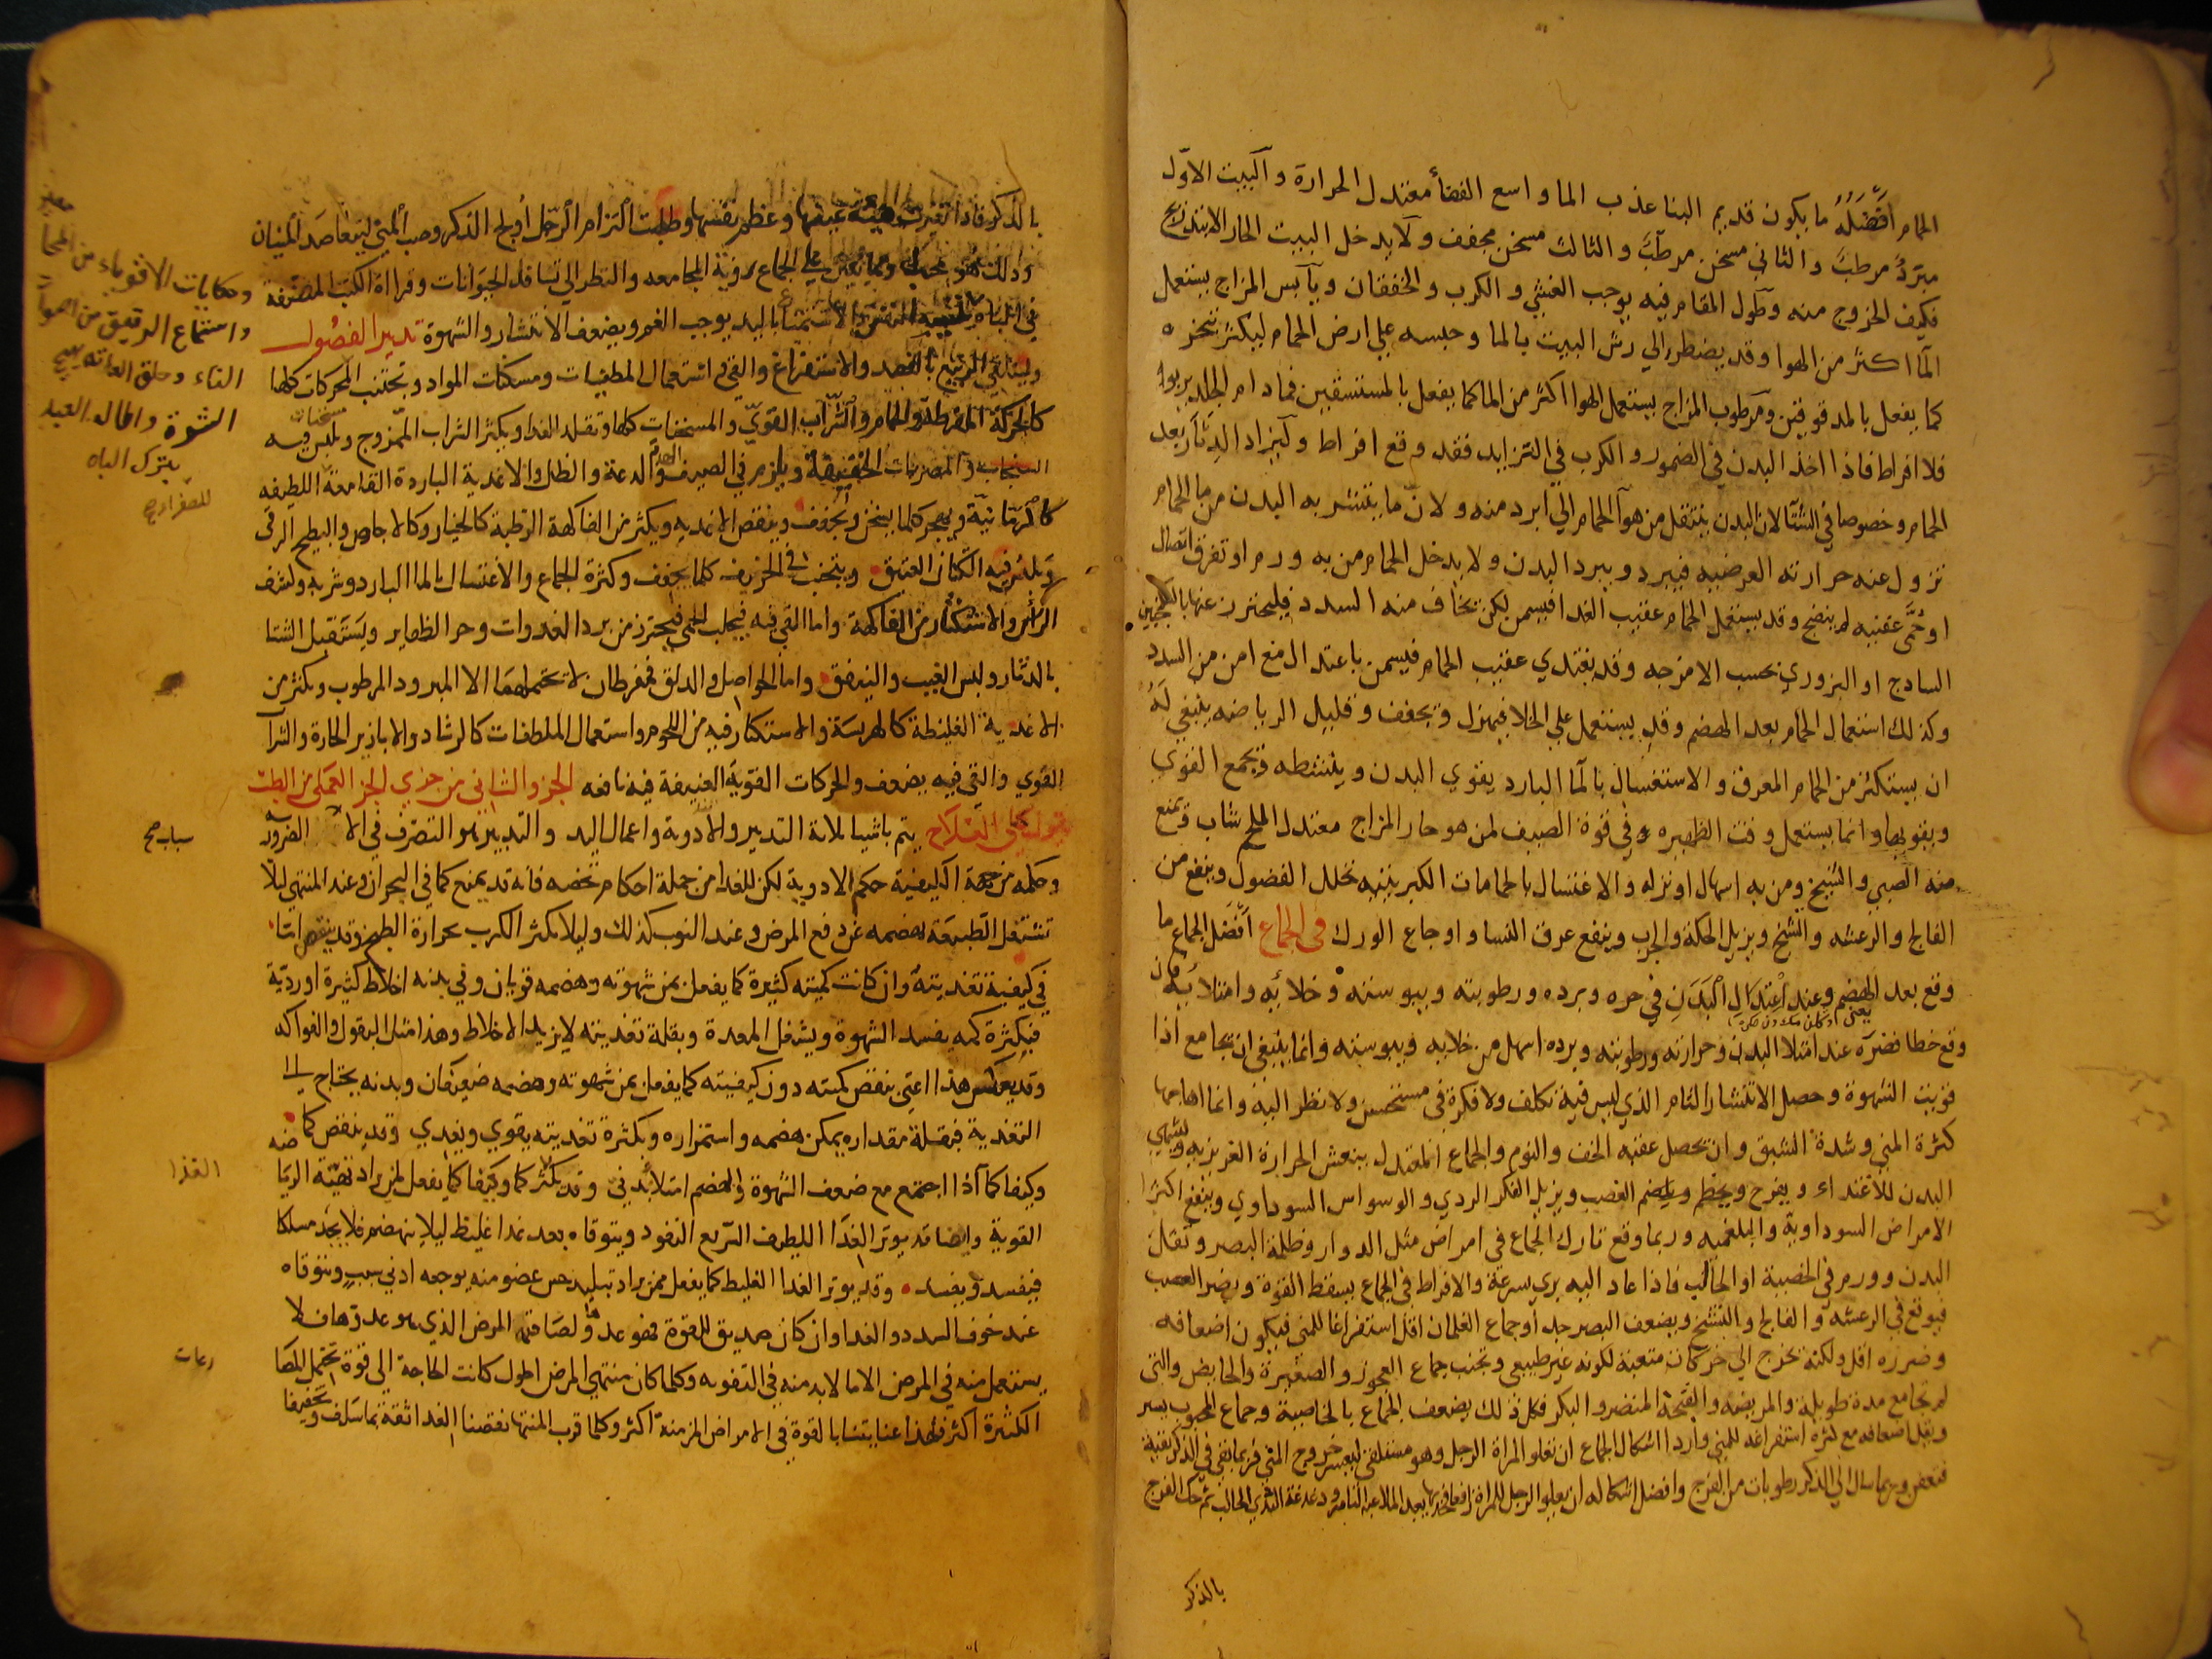 الحمام افضَلُهُ ما يكون قديم البنا عذب الما واسع الفضأ معتدل الحرارة والبيت الاوّل
مبرّدُ مرطبَ والثاني مسخن مرطبَ والثالث مسخن مجفف ولا يدخل البيت الحار الا بتدريج
فكيف الخروج منه وطول المقام فيه يوجب الغشي والكرب والخفقان ويآبس المزاج يستعمل
المآ اكثر من الهوا وقد يضطر الي رش البيت بالما وحبسه علي ارض الحمام ليكثر تبخره
كما يفعل بالمدقوقين ومرطوب المزاج يستعمل الهوا اكثر من الما كما يفعل بالمستسقين فما دام الجلد يربوا
فلا افراط فاذا اخذ البدن في الضمور والكرب في التزايد فقد وقع افراط وليزاد الدِثَآر بعد
الحمام وخصوصا في الشتا لان البدن ينتقل من هوآ الحمام الي ابرد منه ولانّ ما يتنشر به البدن من ما الحمام
تزول عنه حرارته العرضيه فيبرد ويبرد البدن ولا يدخل الحمام من به ورم او تفرق اتصال
او حُمَّى عفنيه لم ينضج وقد يستعمل الحمام عقيب الغدا فيسمن لكن يخاف منه السدد فليحترز عنها بالسكنجبين
السادج او البزوري بحسب الامزجه وقد يغتدي عقيب الحمام فيسمن باعتدال مع امن من السدد
وكذلك استعمال الحمام بعد الهضم وقد يستعمل علي الخلا فيهزل ويجفف وقليل الرياضه ينبغي لهُ
ان يستكثر من الحمام المعرق والاستغسال بالمآ البارد يقوي البدن وينشطه ويجمع القوي
ويقويها وانما يستعمل وقت الظهيره وفي قوة الصيف لمن هو حار المزاج معتدل اللحم شاب ويمنع
منه الصبي والشيخ ومن به اسهال او نزله والاغتسال بالحمامات الكبريتيه تحلل الفضول وينفع من
الفالج والرعشه والتشنج ويزيل الحكة والجرب وينفع عرق النسا واوجاع الورك في الجماع أفضَل الجماع ما
وقع بعد الهضم وعند اعتدَال البَدَن في حره وبرده ورطوبته ويبوسته وخلائه وامتلائه فان
وقع خطا فضرَره عند امتلا البدن وحرارته ورطوبته وبرده اسهل من خلايه ويبوسته وانما ينبغي ان يجامع اذا
قويت الشهوة وحصل الانتشار التام الذي ليس فيه تكلف ولا فكرة في مستحسن ولا نظر اليه وانما اهاجها
كثرة المني وشدة الشبق وان يحصل عقبه الخف والنوم والجماع المعتدل ينعش الحرارة الغريزيه ويهيي
البدن للاغتداء ويفرح ويحطم ويهضم الغضب ويزيل الفكر الردي والوسواس السوداوي وينفع اكثر
الامراض السوداوية والبلغميه وربما وقع تارك الجماع في امراض مثل الدوار وظلمة البصر وثقل
البدن وورم في الخصية او الحالب فاذا عاد اليه بري سرعة والافراط في الجماع يسقط القوة ويضر العصب
فيوقع في الرعشه والفالج والتشنج ويضعف البصر جدا وجماع الغلمان اقل استفراغا للمني فيكون اضعافه
وضرره اقل ولكنه يحوج الي حركات متعبة لكونه غير طبيعي وتجنب جماع العجوز والصغيرة والحايض والتي
لم تجامع مدة طويلة والمريضه والقبيحة المنضر والبكر فكل ذلك يضعف الجماع بالخاصية وجماع المحبوب يسر
ويقل اضعافه مع كثرة استفراغه للمني واردا اشكال الجماع ان تعلو المراة الرجل وهو مستلقي ليعسر خروج المني فربما بقي في الذكر بقية
فتعفن وربما سال الي الذكر رطوبات من الفرج وافضل اشكاله ان يعلو الرجل المراة رافعا فخديها بعد الملاعبه التامه ودغدغة الثدي والحالب ثم حك الفرج
بالذكر
بالذكر فاذا تغيرت هيئة عينيها وعظم نفسها وطلبت التزام الرّجل أولج الذكر وصب المني ليتعاضد المنيان
وذلك هو المحبل ومما يعين علي الجماع رؤية المجامعه والنظر الي تسافد الحيوانات وقراءة الكتب المصنّفة
في الباه والاستمنا باليد يوجب الغم ويضعف الانتشار والشهوة تدبير الفصُول
وليتلقي الربيع بالفصد والاستفراغ والقي واستعمال المطفيات ومسكنات المواد وتجتنب المحركات كلها
كالحركة المفرطة والحمام والشراب القويّ والمسخنات كلها وتقليل الغدا ويكثر الشراب الممزوج ويلبس فيه
السنجاب والمضربات الخفيفة ويلزم في الصيف الهدو والدعة والظل والاغدية الباردة القامعة اللطيفه
كالرمّانيّة ويهجر كلما يسخن ويُجفف وينقص الاغديه ويكثر من الفاكهة الرطبة كالخيار وكالاجاص والبطيخ الرقي
ويلبس فيه الكتان العتيق ويتجنب في الخريف كلما يجفف وكثرة الجماع والاغتسال بالما البارد وشربه وكشف
الرأس والاستكثار من الفاكهة واما القي فيه فيجلب الحمي فيحترز من برد الغدوات وحر الظهاير ويَستَقبل الشتا
بالدثار ولبس الغيب والنيفق واما الحواصل والدلق فمفرطان لا يحتملهما الا المبرود المرطوب ويكثر من
الاغدية الغليظة كالهريسَة والاستكثار فيه من اللحوم واستعمال الملطفات كالرشاد والابازير الحارة والشرآ
القوي والقي فيه يضعف والحركات القوية العنيفة فيه نافعه الجزو الثاني من جزي الجز العملي من الطب
يتم باشيا ثلاثة التدبير والادوية واعمال اليد والتدبير هو التصرّف في الا الضرورية
وحكمه من جهة الكيفية حكم الادوية لكن للغدا من جملة احكام تخصه فانه قد يمنع كما في البحران وعند المنتهي ليلا
تشتغل الطبيعة بهضمه عن دفع المرض وعند النوب كذلك وليلا يكثر الكرب بحرارة الطبخ وقد ينقص امّا
في كيفية تغديته وان كانت كميته كثيرة كما يفعل بمن شهوته وهضمه قويان وفي بدنه اخلاط كثيرة او رديّة
فبكثرة كميه يفسد الشهوة ويشغل المعدة وبقلة تغديته لا يزيد الاخلاط وهذا مثل البقول والفواكه
وقد يعكس هذا اعني ينقص كميته دون كيفيته كما يفعل بمن شهوته وهضمه ضعيفان وبدنه يحتاج الي
التغدية فبقلة مقداره يمكن هضمه واستمراره وبكثرة تغديته يقوي ويغدي وقد ينقص كما منه
وكيفا كما اذا اجتمع مع ضعف الشهوة والهضم امتلا بدني وقد يكثر كما وكيفا كما يفعل لمن يراد تهيئة الريا
القوية وايضا قد يوثر الغدَا اللطيف السّريع النفود ويتوقاه بعد غدا غليظ ليلا ينهضم فلا يجد مسلكا
فيفسد ويفسد وقد يوثر الغدا الغليظ كما يفعل ممن يراد تبليد حس عضو منه يوجعه ادني سبب ونتوقاه
عند خوف السدد والغدا وان كان صديق للقوة فهو عدوّ لها لصداقته المرض الذي هو عدوها فلا
يستعمل منه في المرض الا ما لا بد منه في التقويه وكلما كان منتهي المرض اطول كانت الحاجة الي قوة تحتمل المصا
الكثيرة اكثر فلهذا عنايتنا بالقوة في الامراض المزمنة اكثر وكلما قرب المنتها نقصنا الغدا ثقة بما سَلف وتخفيفا
وحكايات الاقوياء من الجما
واستماع الرقيق من اصوا
النساء وحلق العانه يهيج
الشهوة واطالة العهد
بترك الباه
الغدا